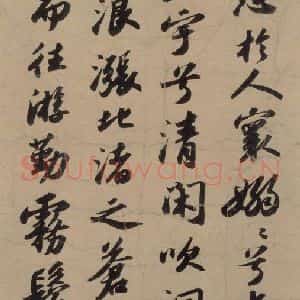 於人寰嫋〻兮
宇兮清閑吹洞
浪漲北渚之蒼
而往游勤霧鬢
Shufawang.CN